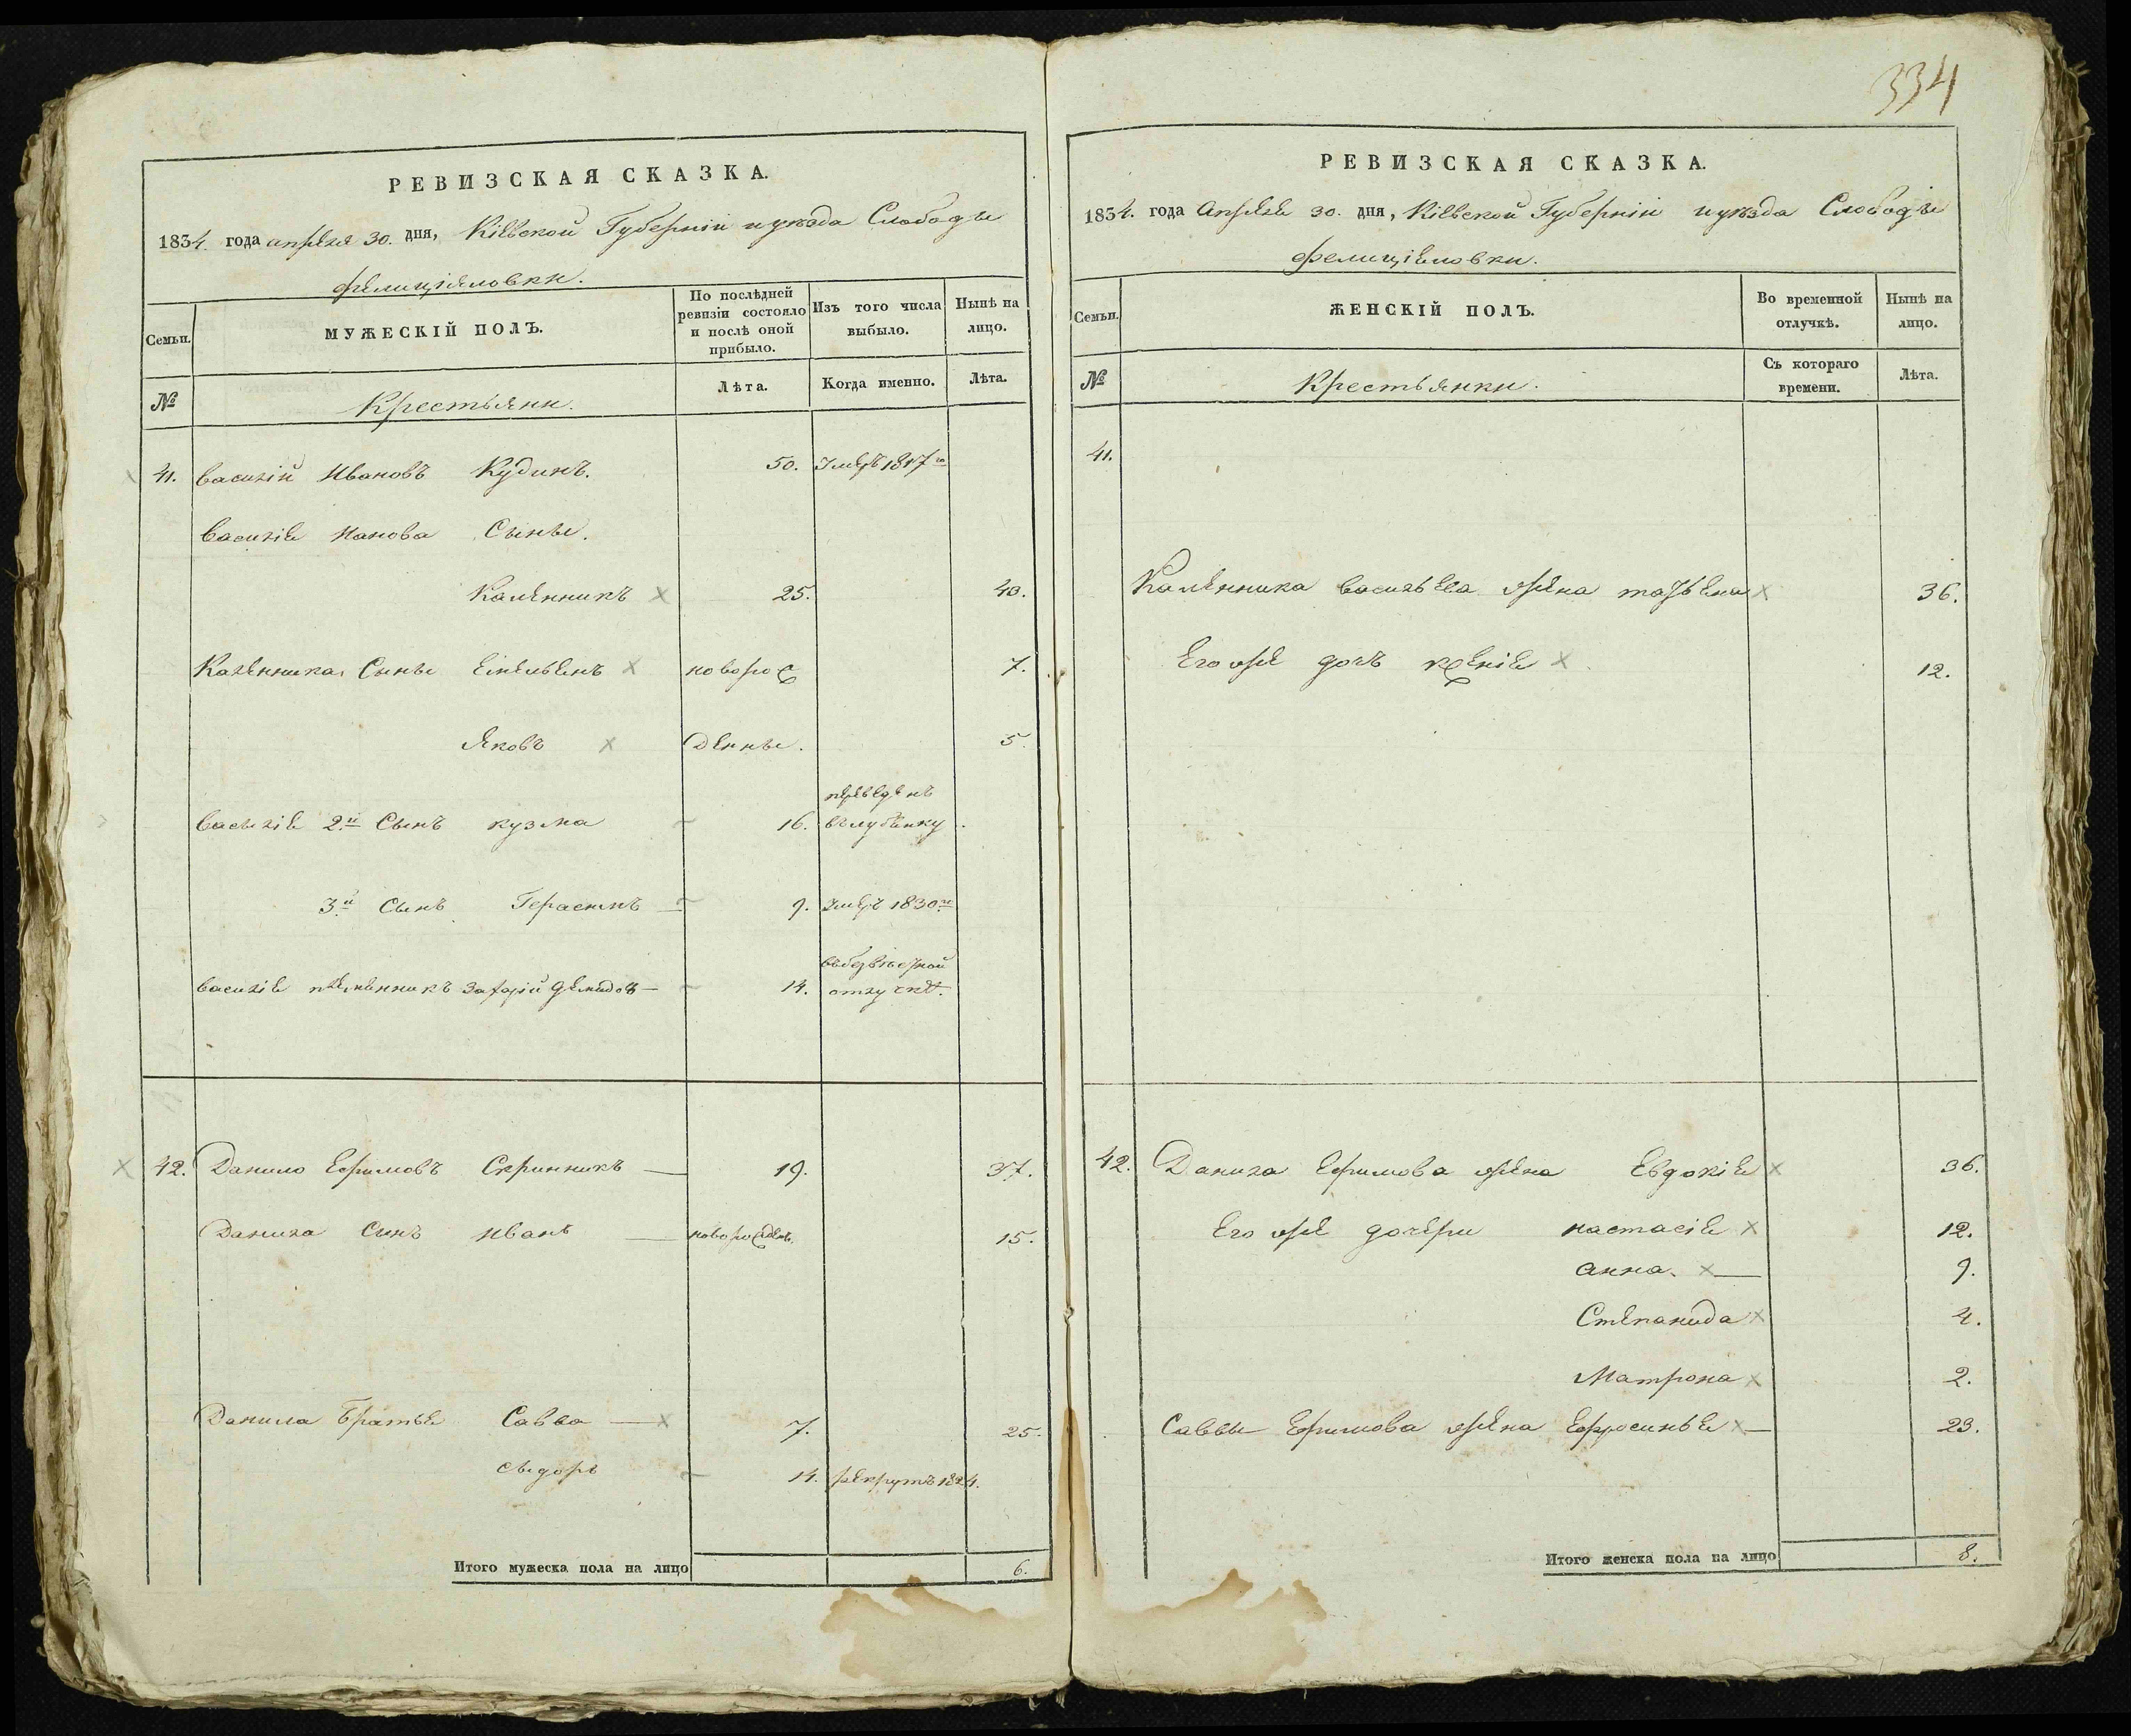 334
РЕВИЗСКАЯ СКАЗКА.
1834. года апреля 30. дня, Кіевской Губерніи и уезда Слободы
Фелиціяловки.
Семьи.
МУЖЕСКІЙ ПОЛЪ.
По послѣдней ревизіи состояло и послѣ оной прибыло.
Изъ того числа выбыло.
Нынѣ на лицо.
№
Крестьяни.
Лѣта.
Когда именно.
Лѣта.
41. Василій Ивановъ Кудинъ. 50. Умеръ 1817го
Василія Иванова Сыны.
Каленникъ 25. 43.
Каленника Сыны Емельянъ новорож 7.
Яковъ денны. 5.
переведенъ
Василія 2й Сынъ кузма 16.
3й Сынъ Герасимъ 9. Умеръ 1830го
Василія племенникъ Захарій Демидовъ 14. отлучке.
42. Данило Ефимовъ Скринникъ 19. 37.
Данила Сынъ Иванъ новорожден. 15.
Данила Братья Савва 7. 25.
Сыдоръ 14. рекрутъ 1824.
Итого мужеска пола на лицо 6.
РЕВИЗСКАЯ СКАЗКА.
1834. года Апреля 30. дня, Кіевской Губерніи и уезда Слободы
Фелиціяловки.
Семьи.
ЖЕНСКІЙ ПОЛЪ.
Во временной отлучкѣ.
Нынѣ на лицо.
№
Крестьянки.
Съ котораго времени.
Лѣта.
41.
Каленника Васильева жена татьена 36.
Его же дочъ ксенія 12.
42. Данила Ефимова жена Евдокія 36.
Его же дочери настасія 12.
анна. 9.
Степанида 4.
Матрона 2.
Саввы Ефимова жена Ефросинья 23.
Итого женска пола на лицо 8.